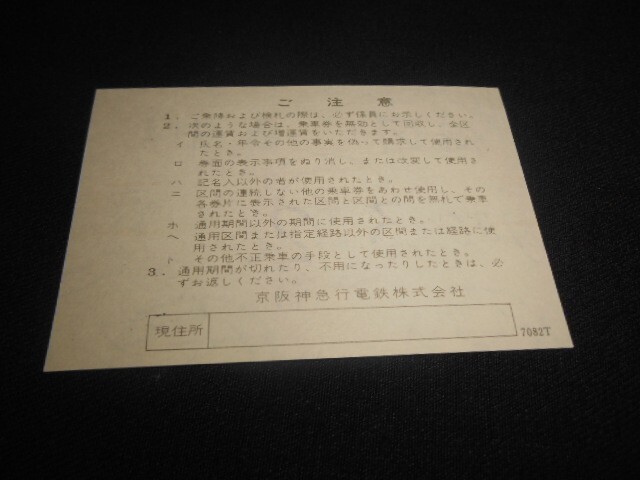 ご注意
1. ご乗降および検札の際は、必ず係員にお示しください。
2. 次のような場合は、乗車券を無効として回収し、全区
間の運賃および増運賃をいただきます。
イ 氏名・年令その他の事実を偽って請求して使用され
たとき。
ロ 券面の表示事項をぬり消し、または改変して使用さ
れたとき。
ハ 記名人以外の者が使用されたとき。
ニ 区間の連続しない他の乗車券をあわせ使用し、その
各券片に表示された区間と区間との間を無札で乗車
されたとき。
ホ 通用期間以外の期間に使用されたとき。
ヘ 通用区間または指定経路以外の区間または経路に使
用されたとき。
ト その他不正乗車の手段として使用されたとき。
3. 通用期間が切れたり、不用になったりしたときは、必
ずお返しください。
京阪神急行電鉄株式会社
現住所
7082T